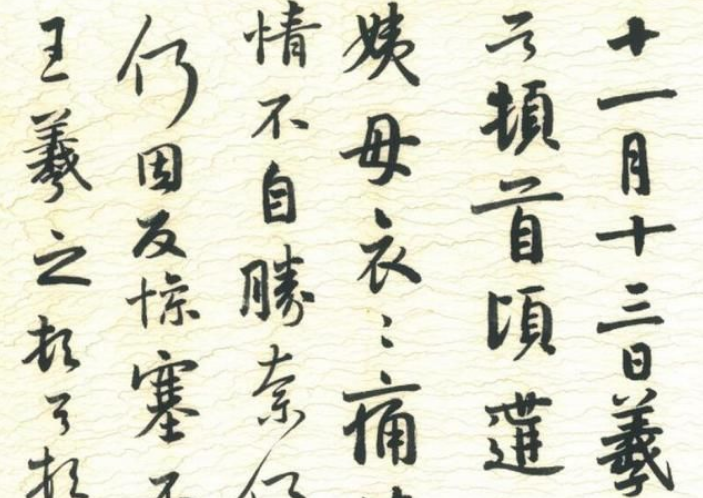 十一月十三日羲
之頓首頃遘
姨母哀〻痛
情不自勝奈何
仍因反慘塞不
王羲之頓首頓